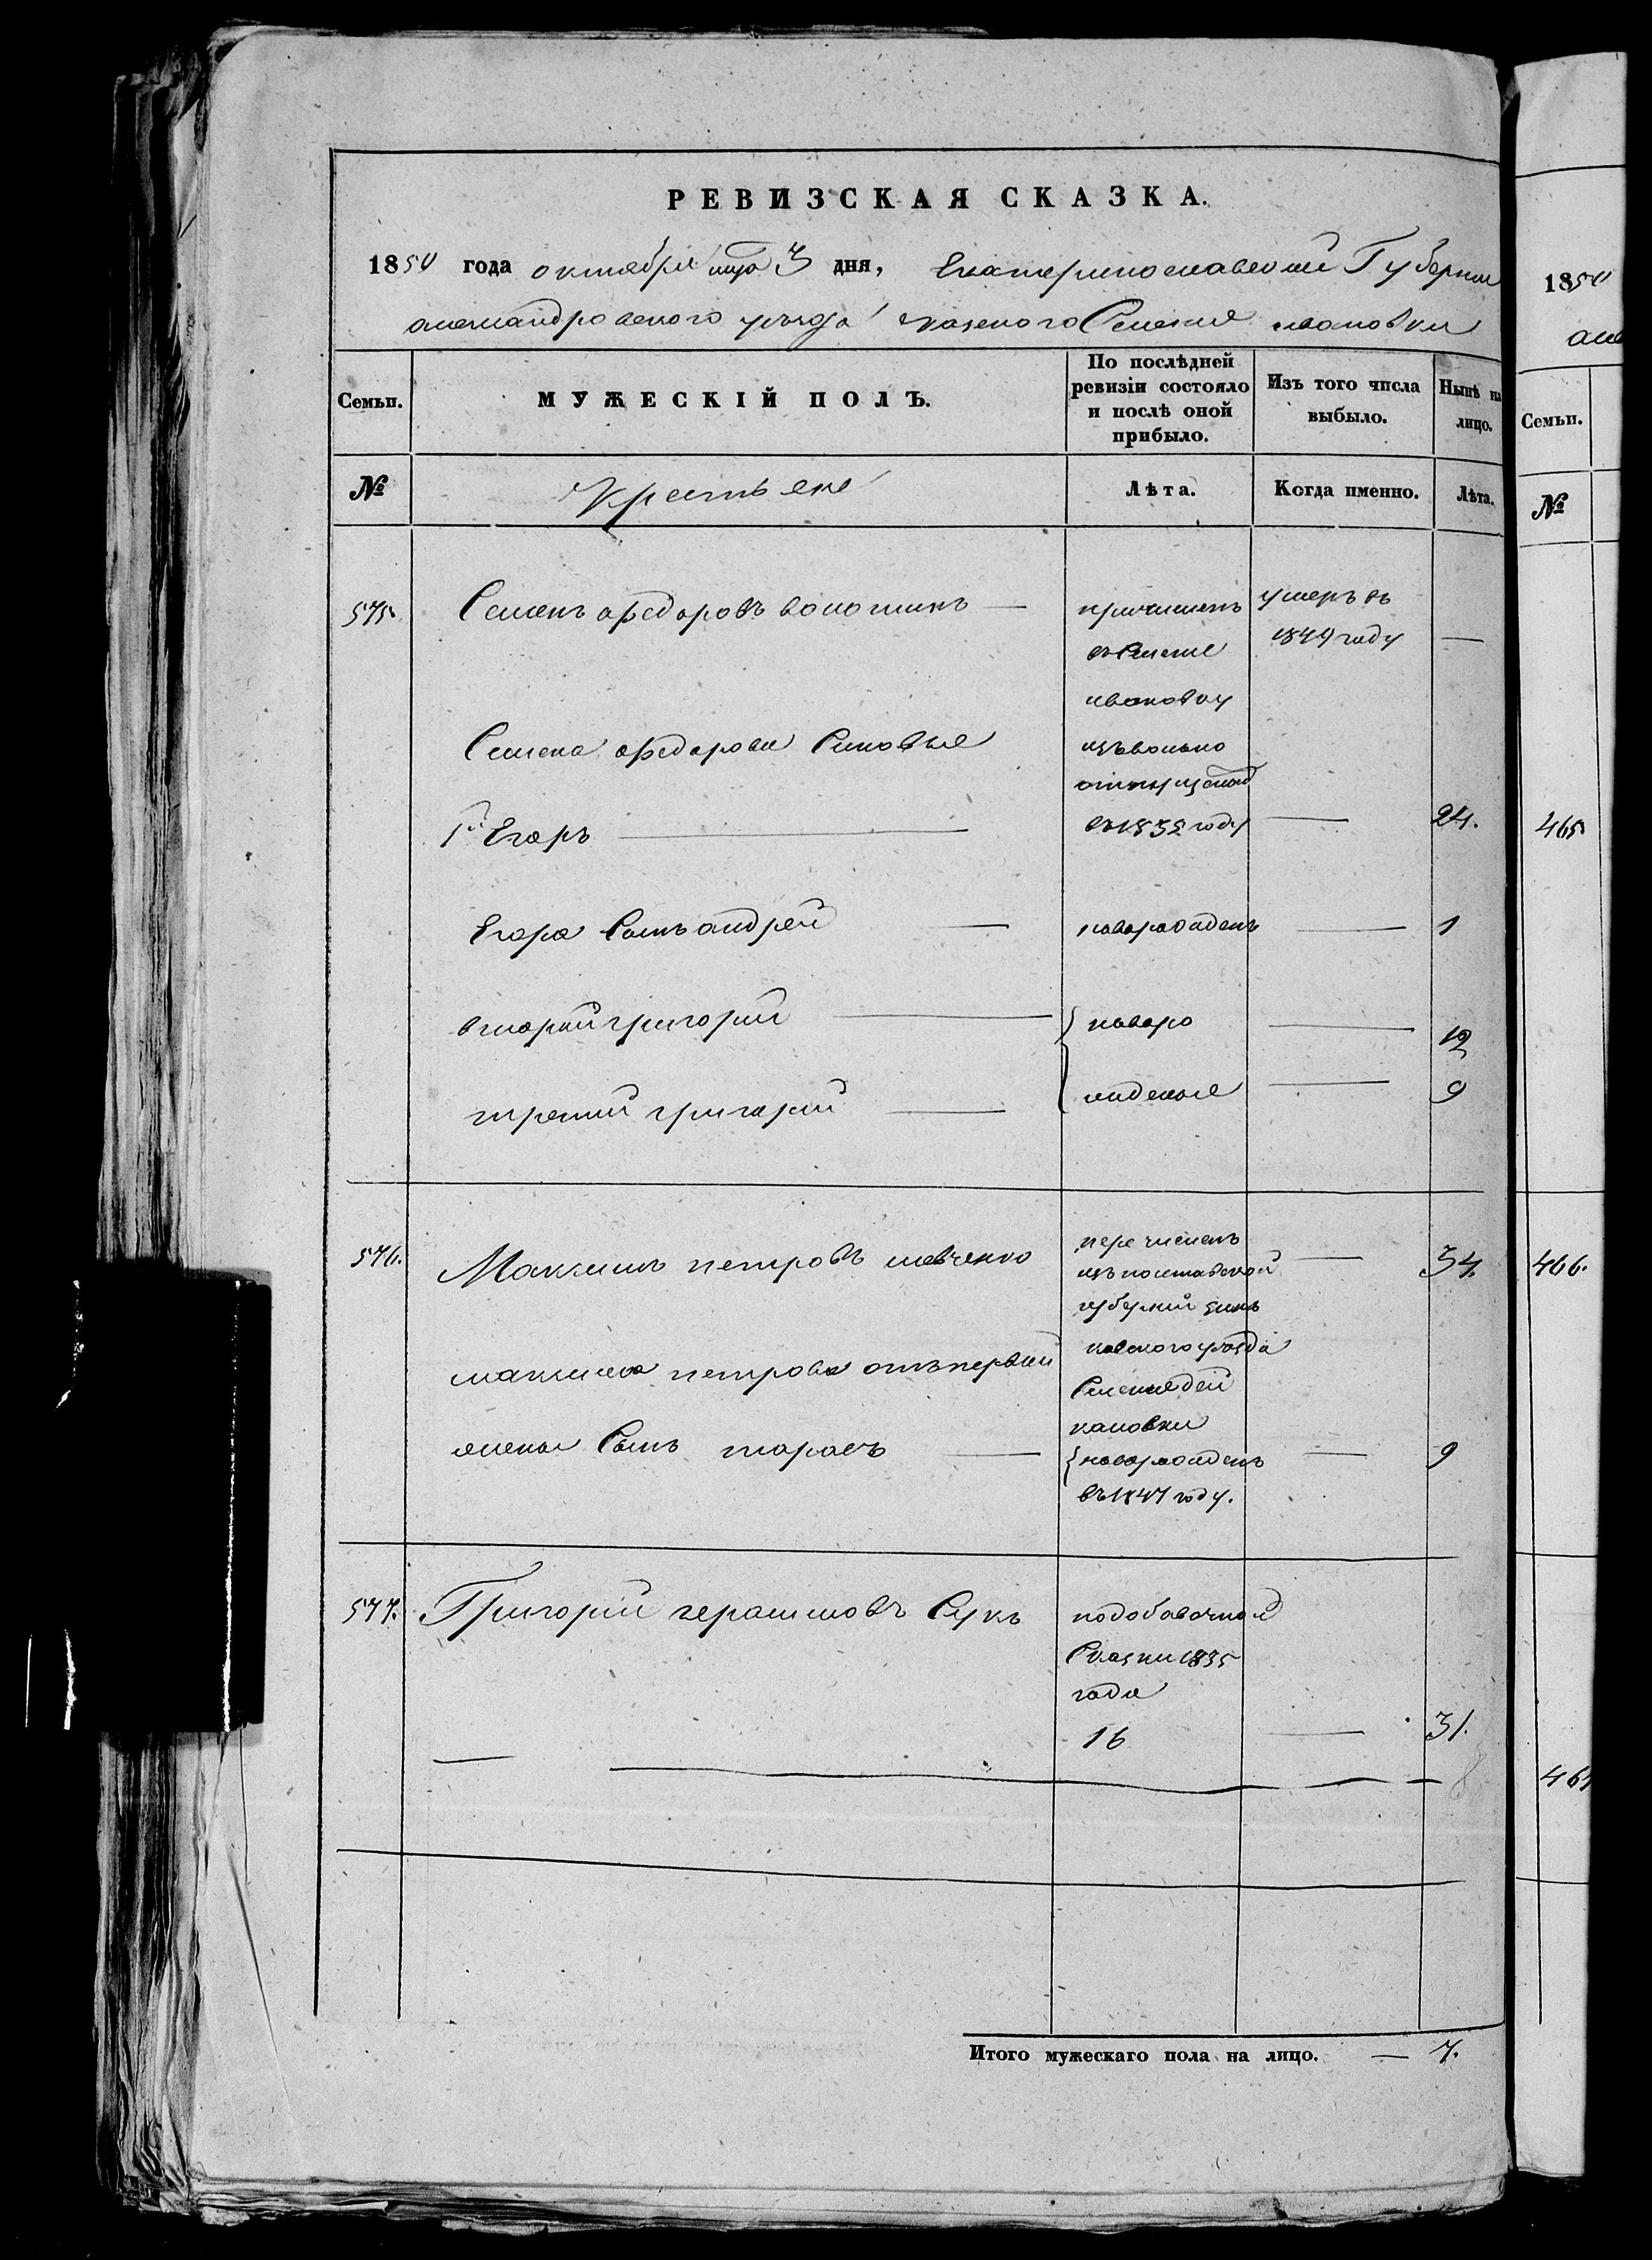 РЕВИЗСКАЯ СКАЗКА.
1850 года октября мца 3 дня, Екатеринославской Губернии
александровского уезда казеного Селения ивановки
Семьи. МУЖЕСКІЙ ПОЛЪ. По послѣдней ревизіи состояло и послѣ оной прибыло. Изъ того числа выбыло. Нынѣ на лицо.
№ Крестьяне Лѣта. Когда именно. Лѣта.
575 Семенъ федоровъ причисленъ умеръ въ
въ Селение 1849 году —
ивановку
Семена федорова Синовья изъ вольно
отпущеной
1й Егоръ въ 1835 году — 24.
Егора Сынъ андрей — новорожденъ — 1
вторий григорий { новоро — 12
третий григорий — жденые — 9
576. Максимъ петровъ шевченко перечисленъ — 34.
изъ полтавской
губернии зинь
ковского уезда
максима петрова отъ первий Селения дей
кановки
жены Сынъ тарасъ — { новорожденъ — 9
въ 1841 году.
577. Григорий герасимовъ Сукъ подобавочной
Сказки 1835
года
16 — 31.
Итого мужескаго пола на лицо. — 7.
1850
Семьи.
№
465
466.